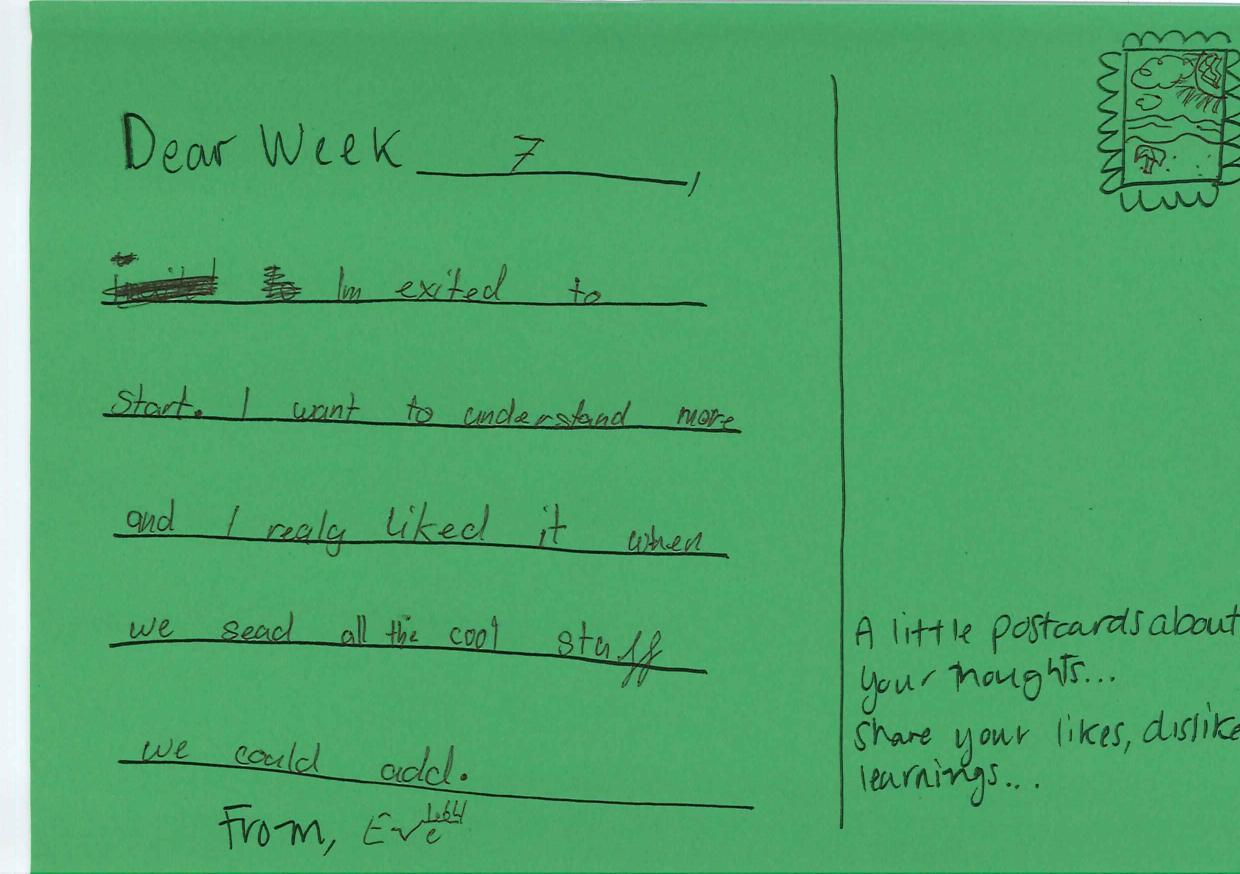 Dear Week 7,
Im exited to
start. I want to understand more
and I realy liked it when
we sead all the cool stuff
we could add.
From, Eve
A little postcards about
your thoughts...
share your likes, dislike
learnings...